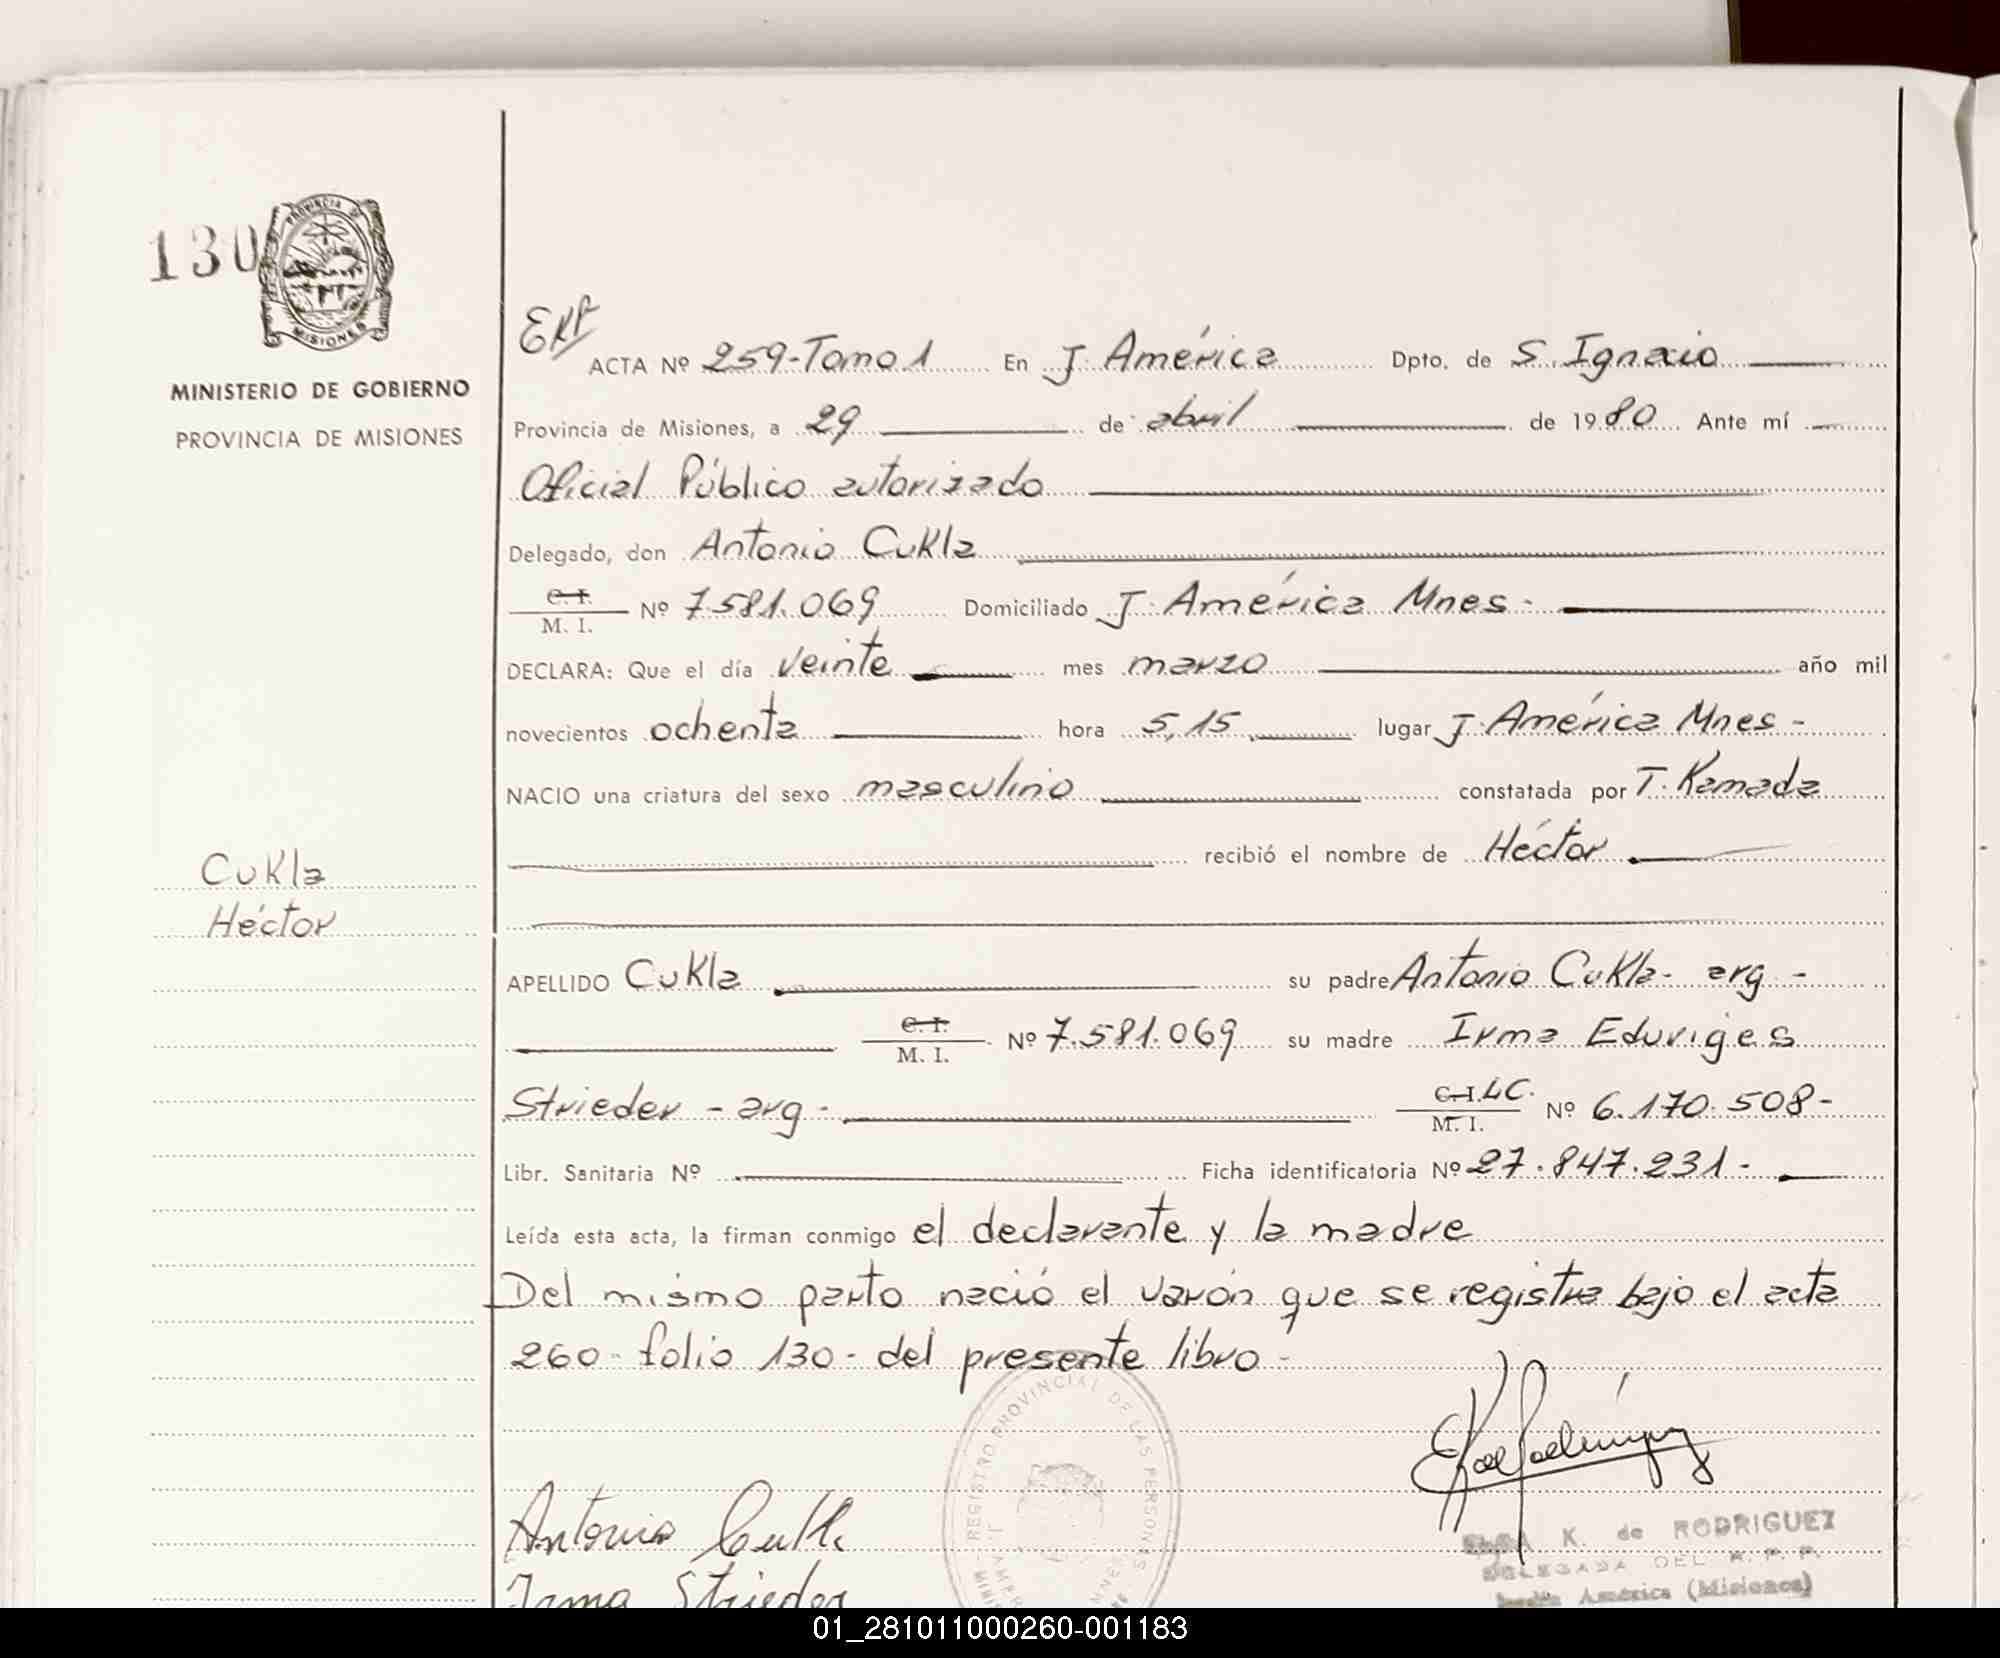 130
PROVINCIA DE
MISIONES
MINISTERIO DE GOBIERNO
PROVINCIA DE MISIONES
ACTA Nº 259-Tomo 1 En J. América Dpto. de S. Ignacio
Provincia de Misiones, a 29 de abril de 1980 Ante mí
Oficial Público autorizado
Delegado, don Antonio Cukla
C. I.
M. I. Nº 7.581.069 Domiciliado J. América Mnes-
DECLARA: Que el día veinte mes marzo año mil
novecientos ochenta hora 5,15 lugar J. América Mnes-
NACIO una criatura del sexo masculino constatada por T. Kamada
recibió el nombre de Héctor
Cukla
Héctor
APELLIDO Cukla su padre Antonio Cukla- arg-
C. I.
M. I. Nº 7.581.069 su madre Irma Eduviges
Strieder - arg- C. I. LC.
M. I. Nº 6.170.508-
Libr. Sanitaria Nº Ficha identificatoria Nº 27.847.231-
Leída esta acta, la firman conmigo el declarante y la madre
Del mismo parto nació el varón que se registra bajo el acta
260- folio 130- del presente libro-
REGISTRO PROVINCIAL DE LAS PERSONAS
Antonio Cukla
Irma Strieder
K. de RODRIGUEZ
DELEGADA DEL R. P. P.
Jardín América (Misiones)
01_281011000260-001183